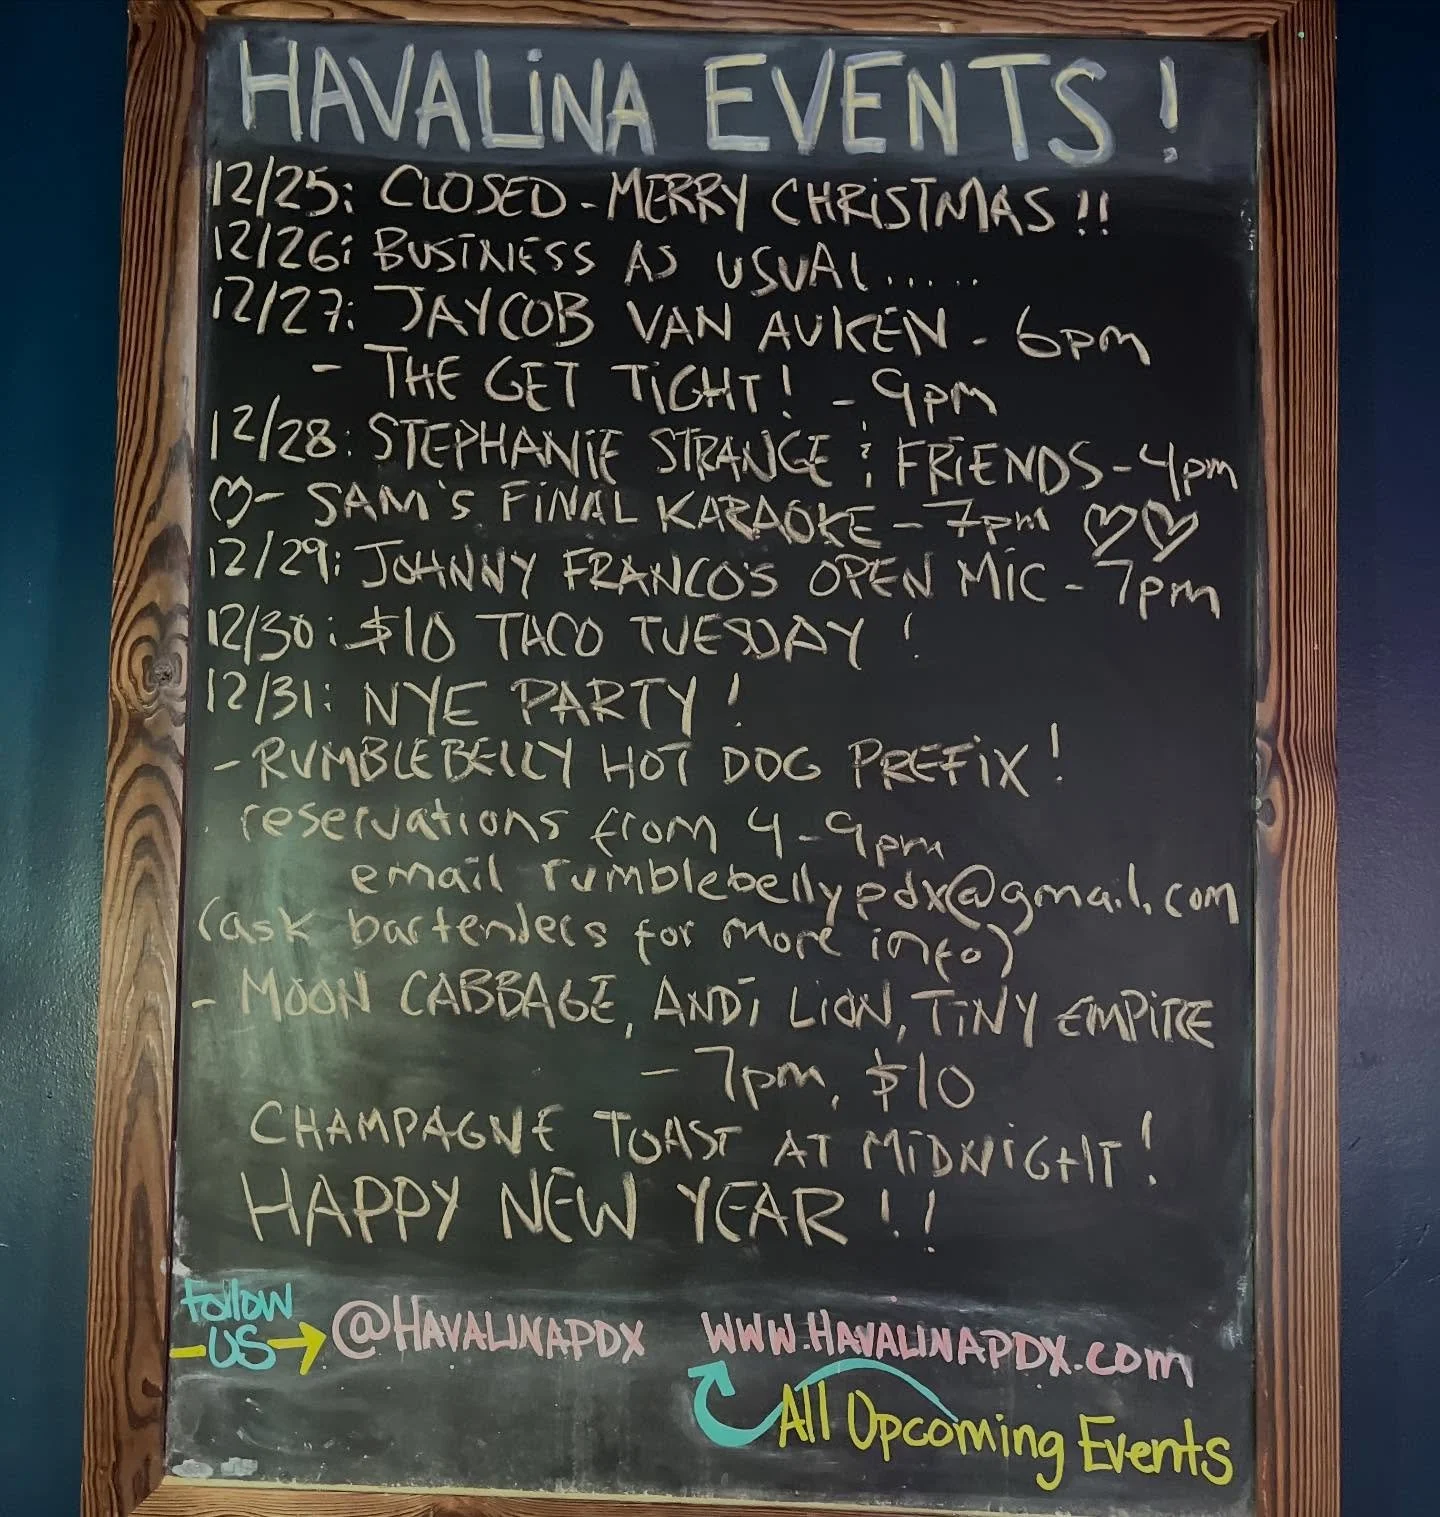 HAVALINA EVENTS!
12/25: CLOSED - MERRY CHRISTMAS!!
12/26: BUSINESS AS USUAL.....
12/27: JAYCOB VAN AUKEN - 6pm
- THE GET TIGHT! - 9pm
12/28: STEPHANIE STRANGE & FRIENDS - 4pm
♡- SAM'S FINAL KARAOKE - 7pm ♡♡
12/29: JOHNNY FRANCO'S OPEN MIC - 7pm
12/30: $10 TACO TUESDAY!
12/31: NYE PARTY!
- RUMBLEBELLY HOT DOG PREFIX!
reservations from 4-9pm
email rumblebellypdx@gmail.com
(ask bartenders for more info)
- MOON CABBAGE, ANDI LION, TINY EMPIRE
- 7pm, $10
CHAMPAGNE TOAST AT MIDNIGHT!
HAPPY NEW YEAR!!
Follow US → @HAVALINAPDX WWW.HAVALINAPDX.com
All Upcoming Events